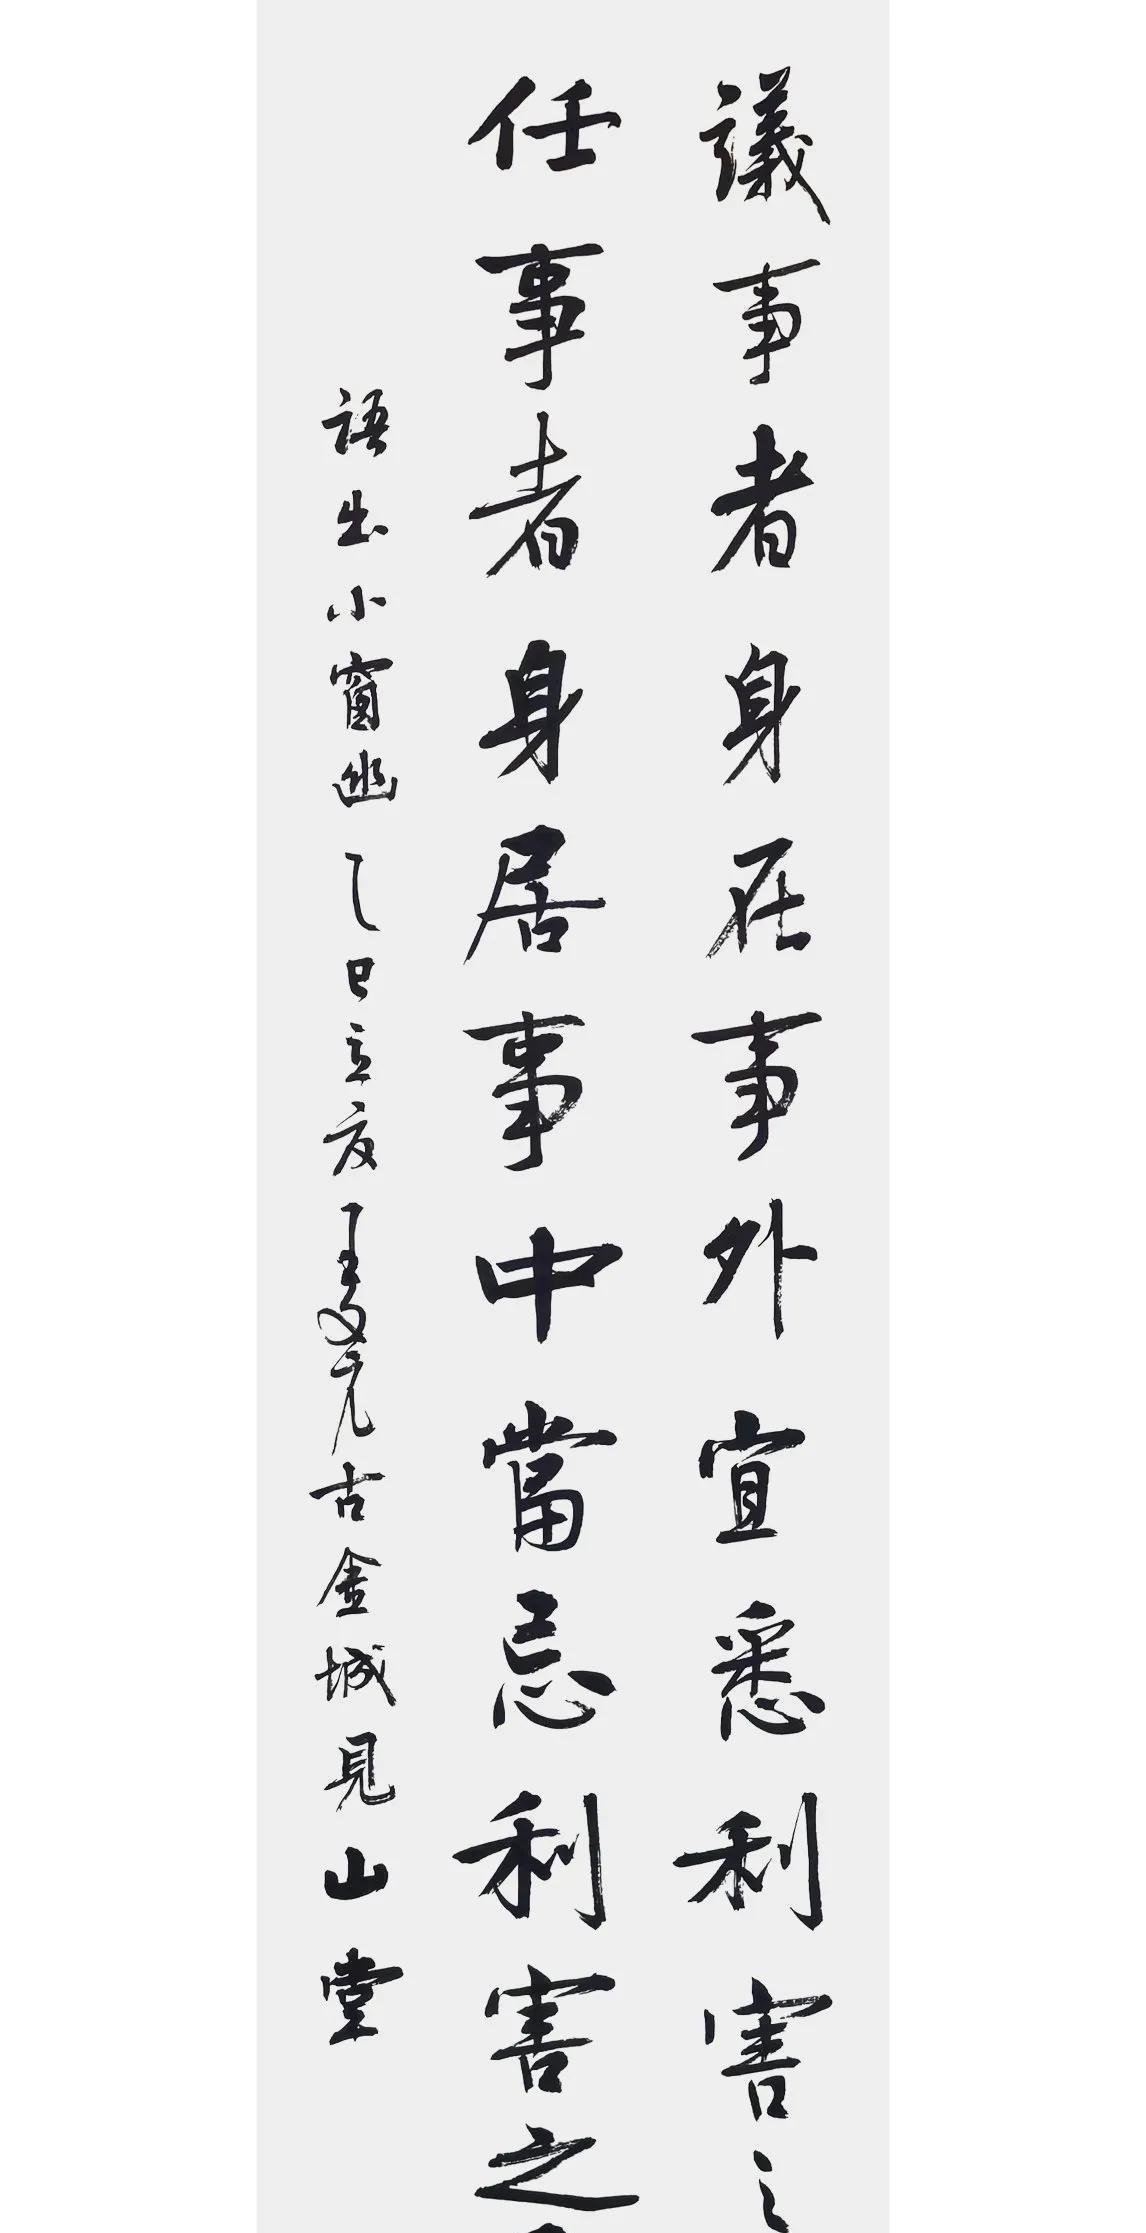 議事者身在事外宜悉利害之
任事者身居事中當忘利害之
語出小窗幽乙巳立夏王文元古金城見山堂